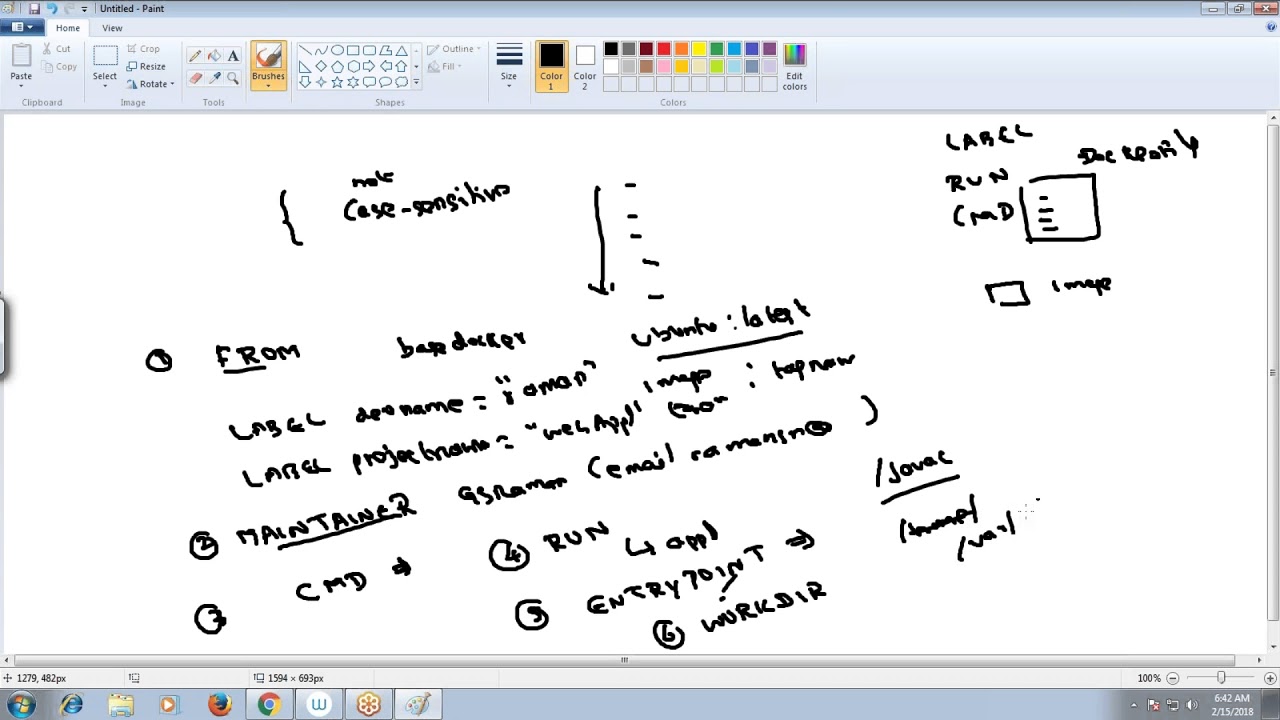 Untitled - Paint
Home View
Paste
Cut
Copy
Clipboard
Select
Crop
Resize
Rotate
Image
Tools
A
Brushes
Outline
Fill
Shapes
Size
Color 1
Color 2
Edit colors
Colors
LABEL
RUN
CMD
image
not
Case-sensitive
① FROM base docker ubuntu:latest
image :
LABEL devname = "
LABEL projectname = "webApp"
② MAINTAINER GSRaman (email )
④ RUN
↳ appl
CMD ⇒
⑤ ENTRYPOINT ⇒
⑥ WORKDIR
/javac
/var/
1279, 482px
1594 × 693px
100%
6:42 AM
2/15/2018